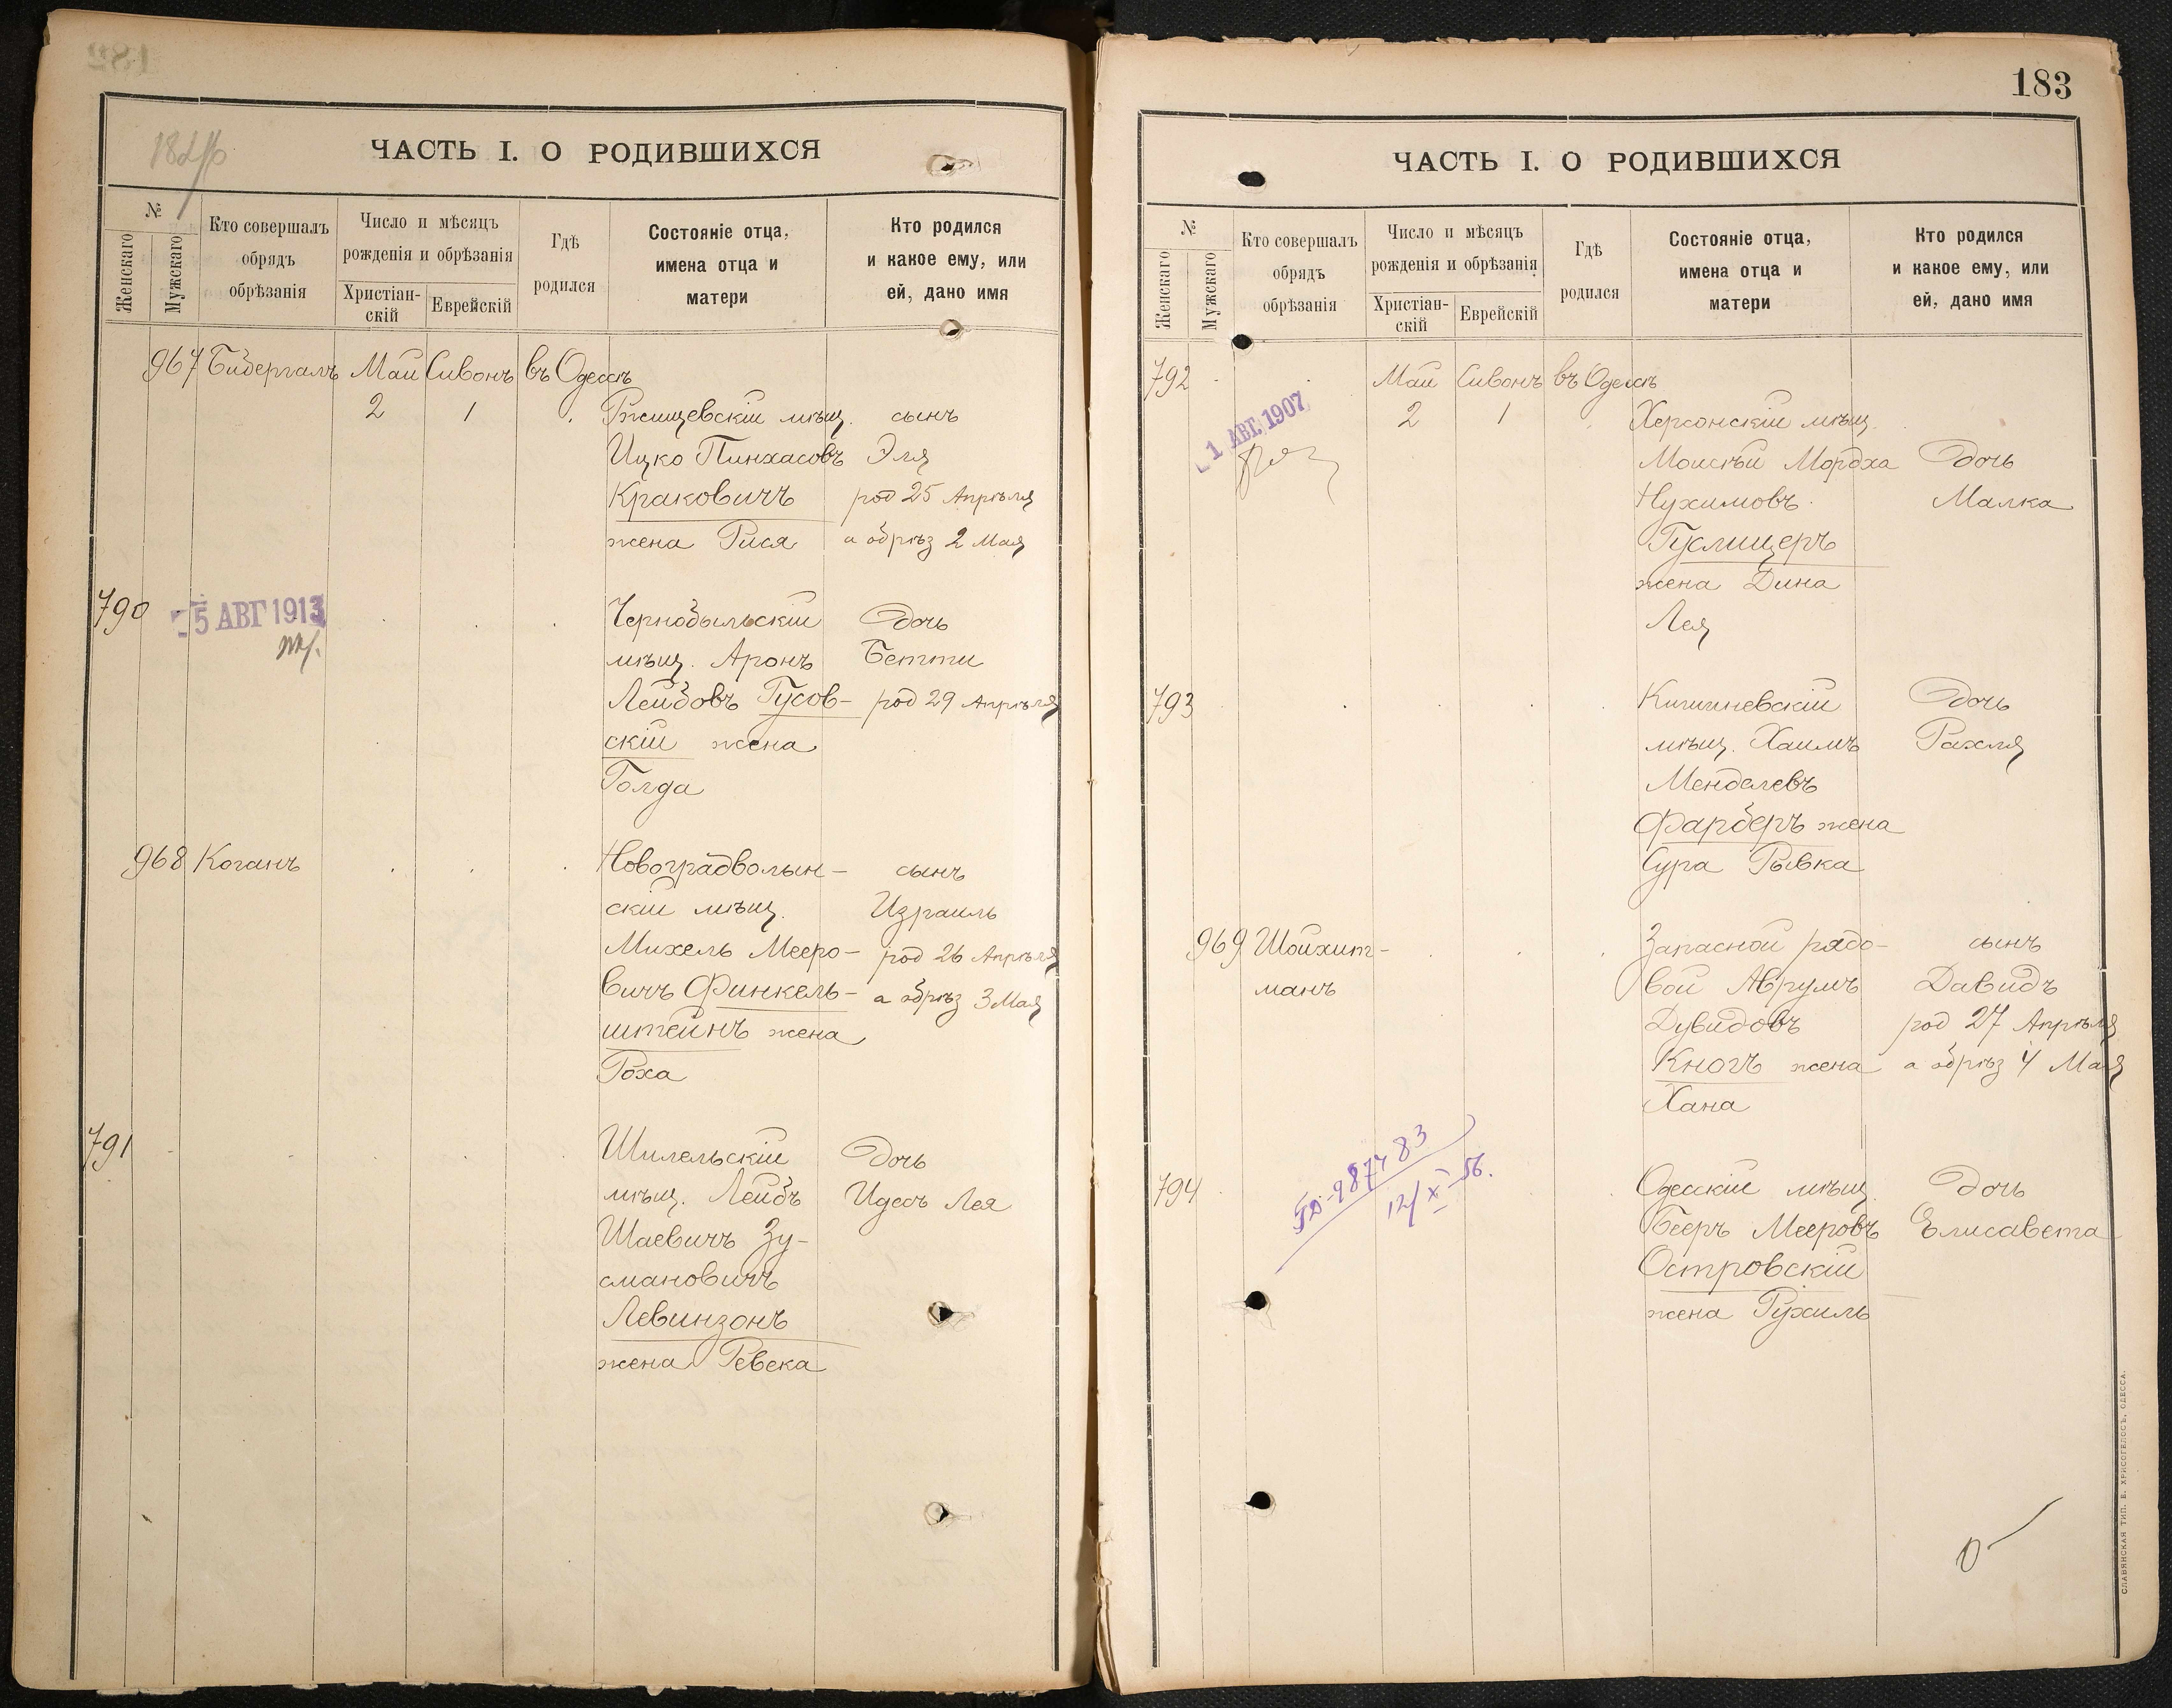 ЧАСТЬ I. О РОДИВШИХСЯ
№
Женскаго
Мужскаго
Кто совершалъ
обрядъ
обрѣзанія
Число и мѣсяцъ
рожденія и обрѣзанія
Христіан-
скій
Еврейскій
Гдѣ
родился
Состояніе отца,
имена отца и
матери
Кто родился
и какое ему, или
ей, дано имя
967 Бидергалъ Май Сивонъ въ Одессѣ
2 1 Ржищевскій мѣщ. сынъ
Ицко Пинхасовъ Эля
Краковичъ род 25 Апрѣля
жена Рися а обрѣз 2 Мая
790 5 АВГ 1913 Чернобыльскій дочь
мѣщ. Аронъ Бетти
Лейбовъ Гусов- род 29 Апрѣля
скій жена
Голда
968 Коганъ Новоградволын- сынъ
скій мѣщ. Израиль
Михель Мееро- род 26 Апрѣля
вичъ Финкель- а обрѣз 3 Мая
штейнъ жена
Роха
791 Шилельскій дочь
мѣщ. Лейбъ Идесъ Лея
Шаевичъ Зу-
смановичъ
Левинзонъ
жена Ревека
183
ЧАСТЬ I. О РОДИВШИХСЯ
№
Женскаго
Мужскаго
Кто совершалъ
обрядъ
обрѣзанія
Число и мѣсяцъ
рожденія и обрѣзанія
Христіан-
скій
Еврейскій
Гдѣ
родился
Состояніе отца,
имена отца и
матери
Кто родился
и какое ему, или
ей, дано имя
792 Май Сивонъ въ Одессѣ
1 АВГ. 1907 2 1 Херсонскій мѣщ.
Моисѣй Мордха дочь
Нухимовъ Малка
Гуслицеръ
жена Дина
Лея
793 Кишиневскій дочь
мѣщ. Хаимъ Рахля
Менделевъ
Фарберъ жена
Сура Рывка
969 Шойхит- Запасной рядо- сынъ
манъ вой Аврумъ Давидъ
Дувидовъ род 27 Апрѣля
Кногъ жена а обрѣз 4 Мая
Хана
987483
12/X-56.
794 Одесскій мѣщ. дочь
Бееръ Мееровъ Елисавета
Островскій
жена Рухиль
СЛАВЯНСКАЯ ТИП. Е. ХРИСОГЕЛОСЪ, ОДЕССА.